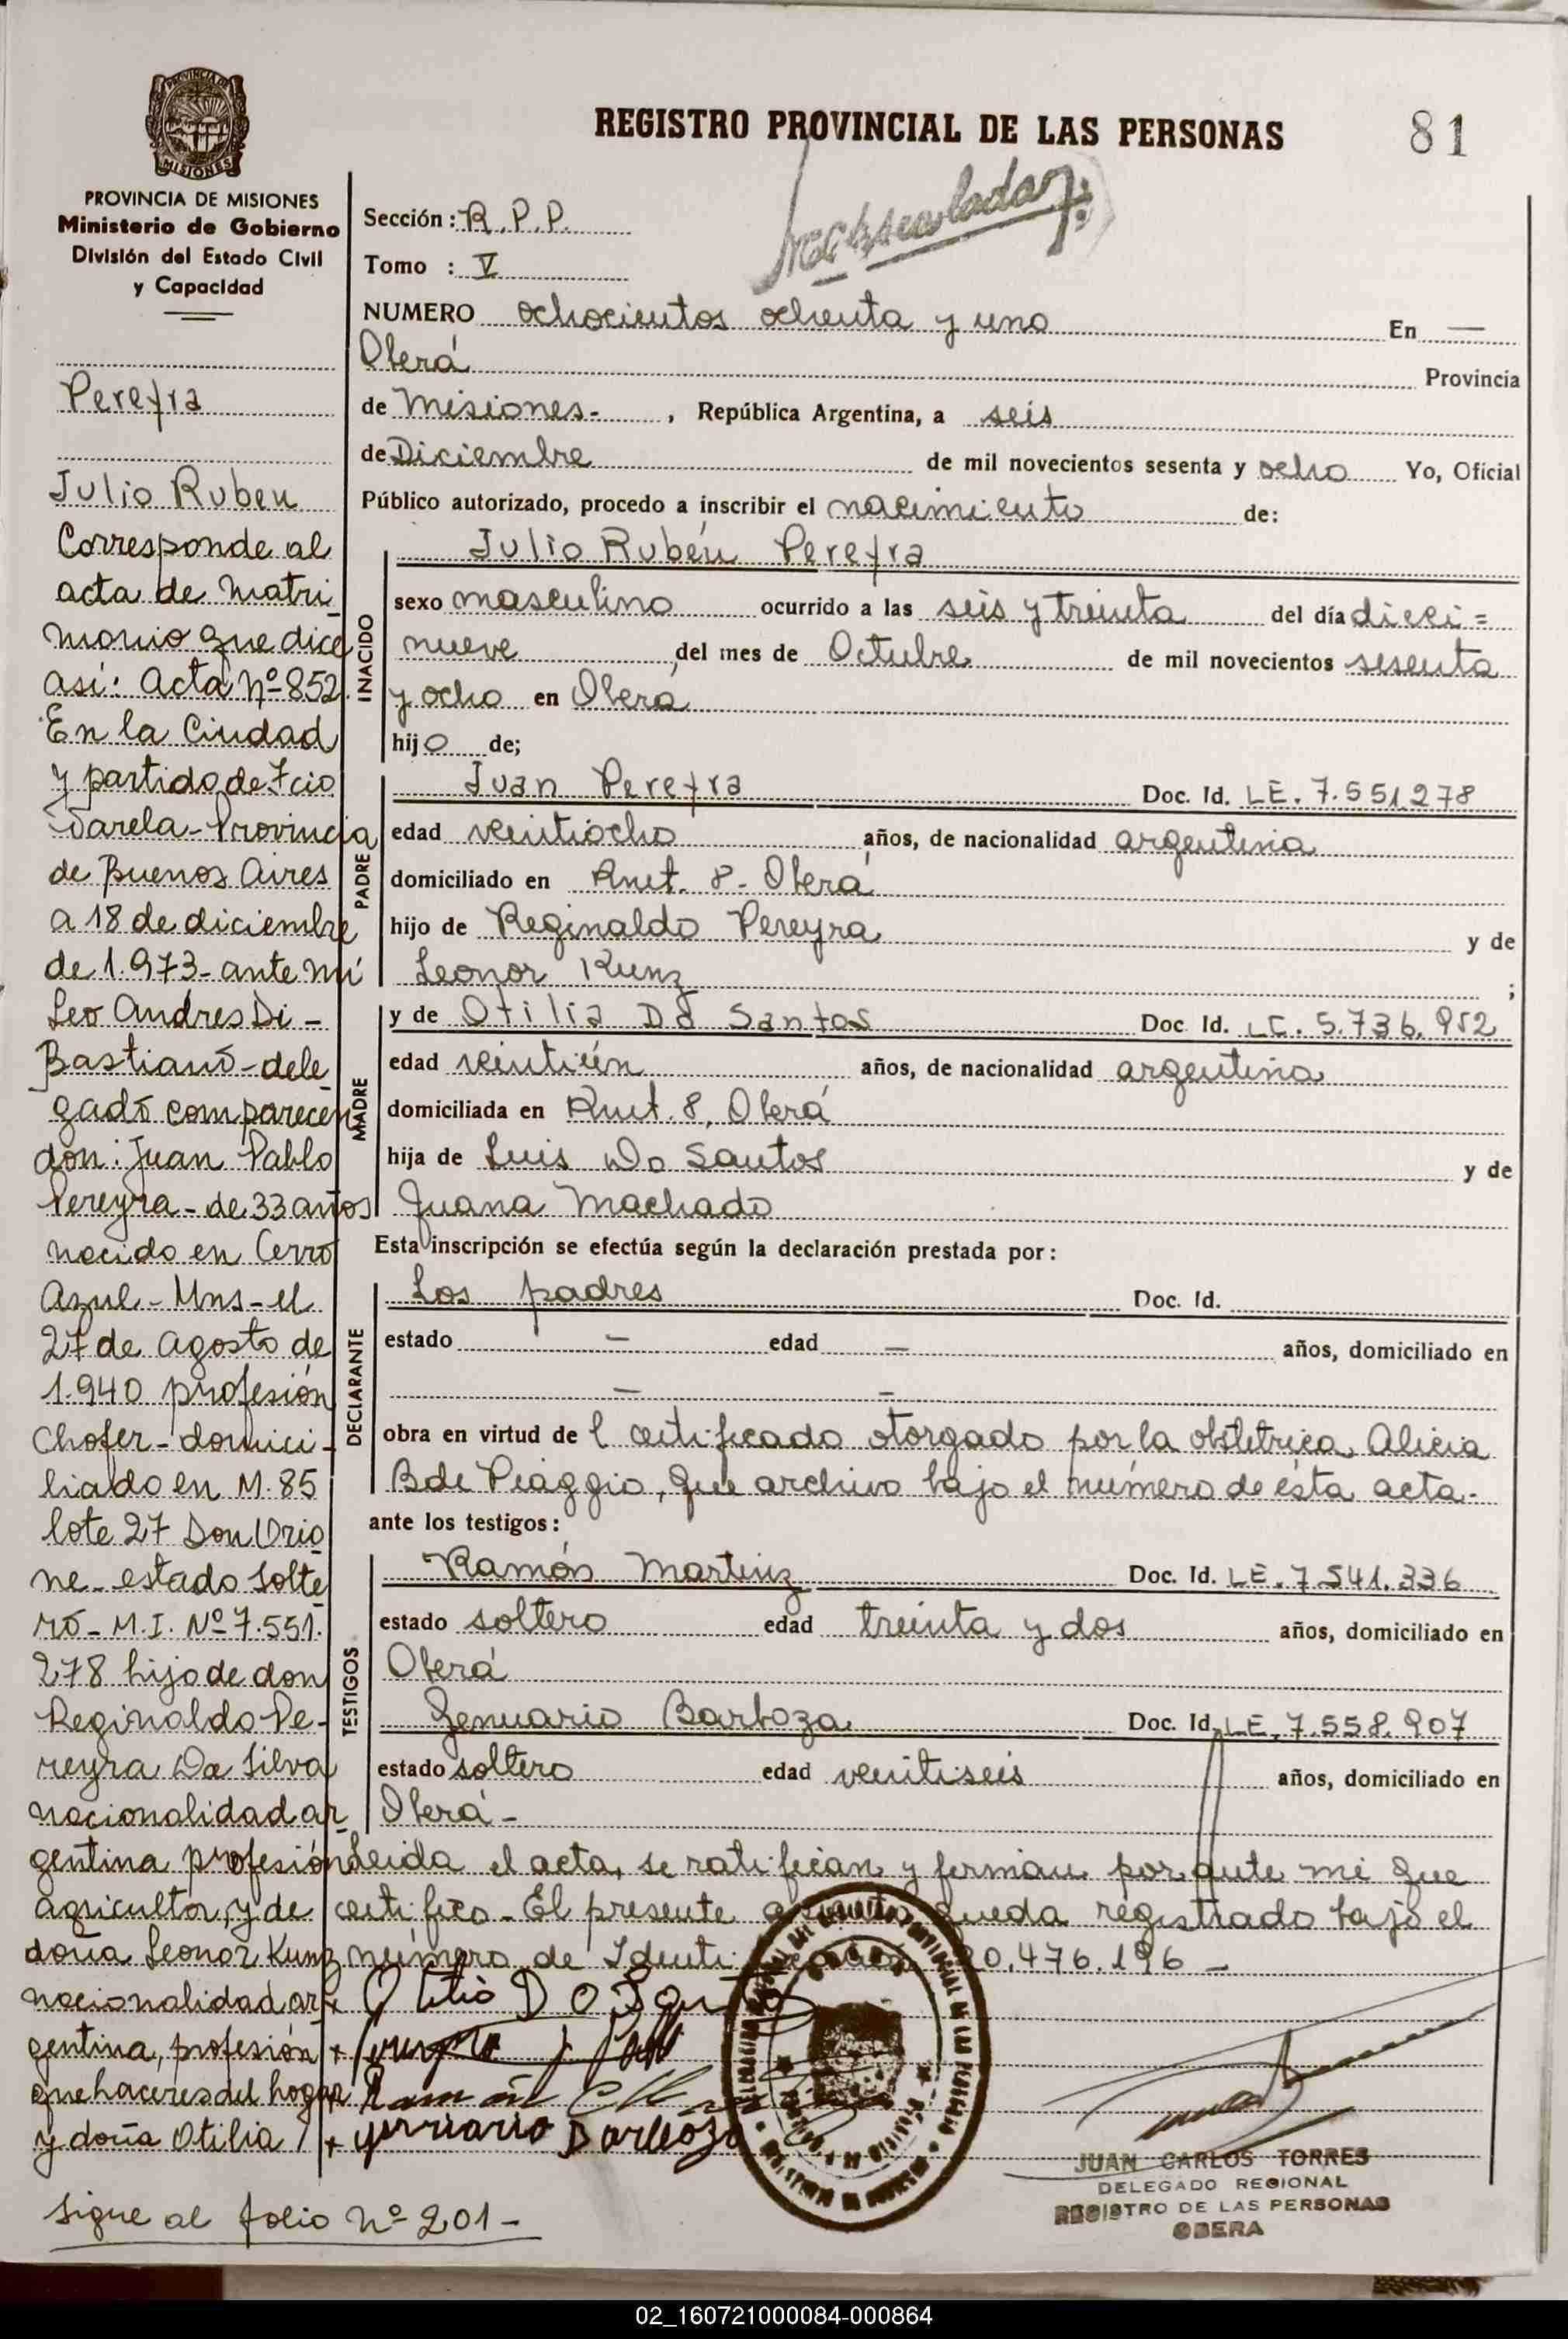 REGISTRO PROVINCIAL DE LAS PERSONAS
81
PROVINCIA DE MISIONES
Ministerio de Gobierno
División del Estado Civil
y Capacidad
Pereyra
Julio Ruben
Corresponde al
acta de matri
monio que dice
asi: Acta Nº 852.
En la Ciudad
y partido de Fcio
Varela - Provincia
de Buenos Aires
a 18 de diciembre
de 1.973 - ante mí
Leo Andres Di -
Bastiano - dele
gado comparecen
don: Juan Pablo
Pereyra - de 33 años
nacido en Cerro
Azul - Mns - el
27 de agosto de
1.940 profesión
Chofer - domici -
liado en M. 85
lote 27 Don Orio
ne - estado solte
ro - M.I. Nº 7.551.
278 hijo de don
Reginaldo Pe -
reyra Da Silva
nacionalidad ar
gentina profesión
agricultor, y de
doña Leonor Kunz
nacionalidad ar
gentina, profesión
quehaceres del hogar
y doña Otilia
Sigue al folio Nº 201 -
Sección: R.P.P.
Tomo : V
NUMERO ochocientos ochenta y uno En —
Oberá Provincia
de Misiones- , República Argentina, a seis
de Diciembre de mil novecientos sesenta y ocho Yo, Oficial
Público autorizado, procedo a inscribir el nacimiento de:
INACIDO
Julio Rubén Pereyra
sexo masculino ocurrido a las seis y treinta del día dieci=
nueve del mes de Octubre de mil novecientos sesenta
y ocho en Oberá
hijo de;
PADRE
Juan Pereyra Doc. Id. LE. 7.551.278
edad veintiocho años, de nacionalidad argentina
domiciliado en Rnet. 8 - Oberá
hijo de Reginaldo Pereyra y de
Leonor Kunz ;
MADRE
y de Otilia Do Santos Doc. Id. LC. 5.736.952
edad veintiún años, de nacionalidad argentina
domiciliada en Rnet. 8, Oberá
hija de Luis Do Santos y de
Juana Machado
Esta inscripción se efectúa según la declaración prestada por:
DECLARANTE
Los padres Doc. Id.
estado — edad — años, domiciliado en
— —
obra en virtud de l certificado otorgado por la obstetrica Alicia
B de Piaggio, que archivo bajo el número de ésta acta.
ante los testigos:
TESTIGOS
Ramón Martinz Doc. Id. LE. 7.541.336
estado soltero edad treinta y dos años, domiciliado en
Oberá
Genuario Barboza Doc. Id. LE. 7.558.907
estado soltero edad veintiseis años, domiciliado en
Oberá -
Leida el acta, se ratifican y firman por ante mi que
certifico - El presente queda registrado bajo el
número de 0.476.196 -
Ramón
Barboza
JUAN CARLOS TORRES
DELEGADO REGIONAL
REGISTRO DE LAS PERSONAS
OBERA
02_160721000084-000864